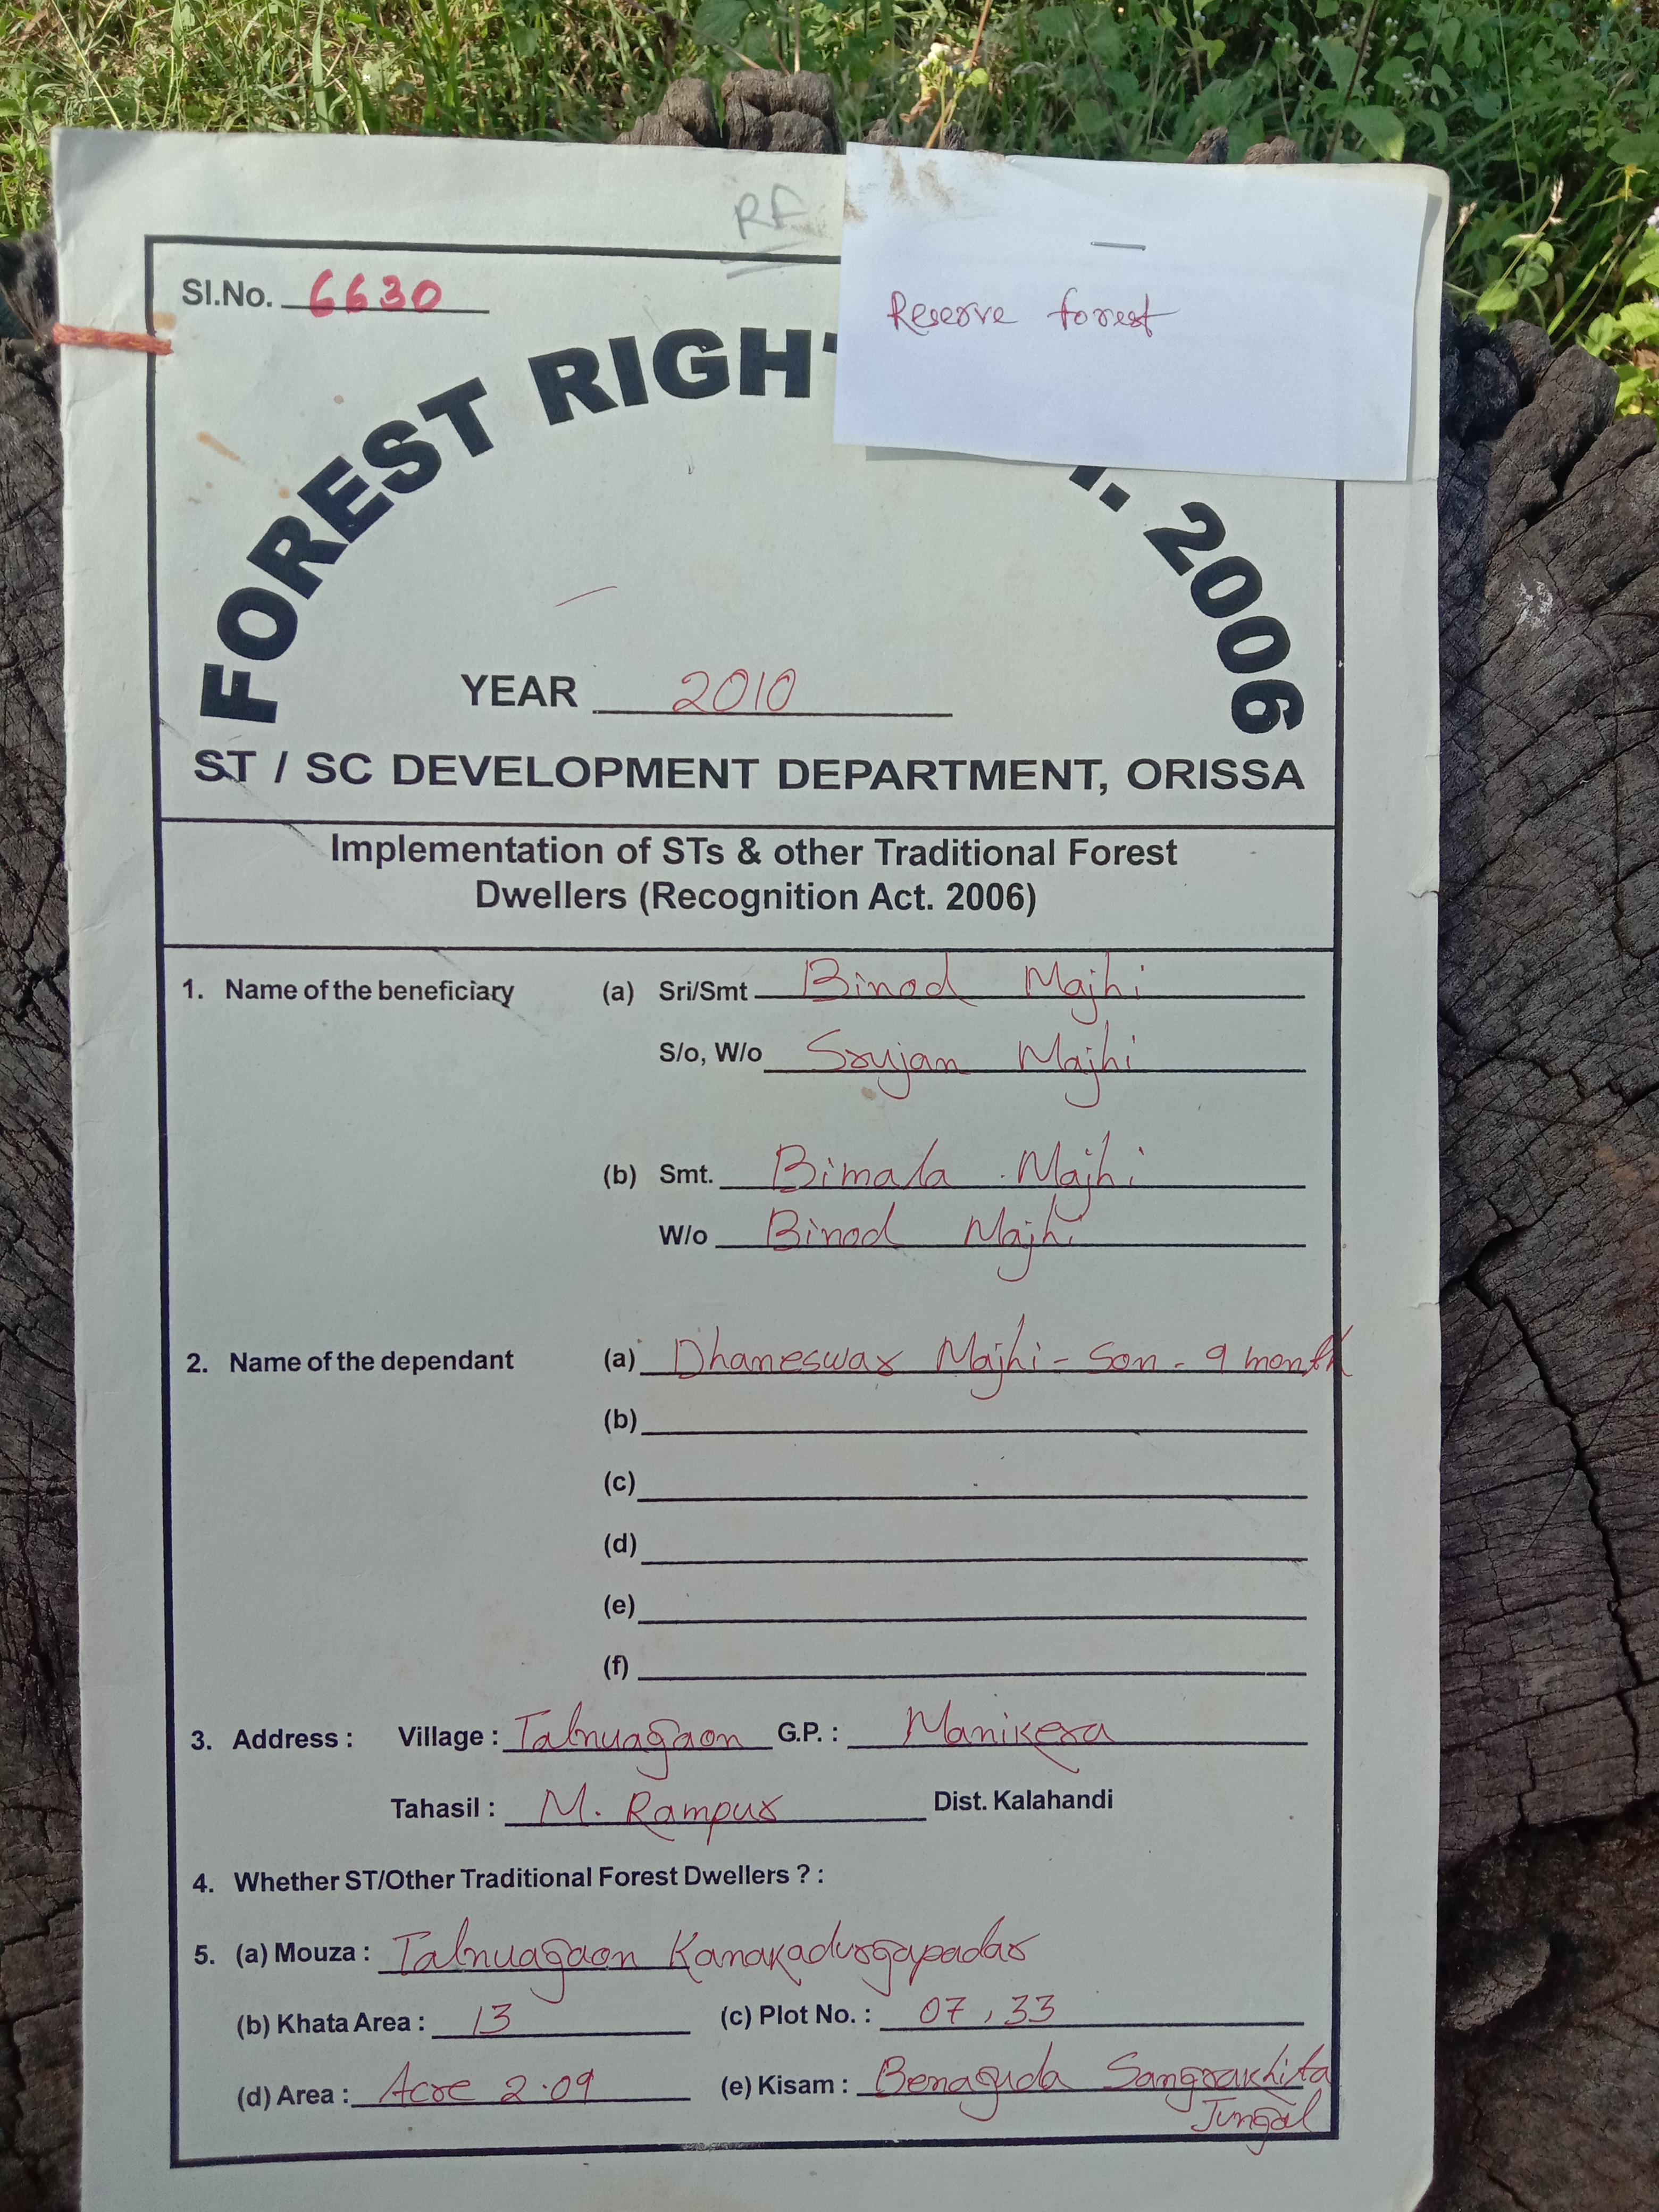 RF
Reserve forest
Sl.No. 6630
FOREST RIGH
. 2006
YEAR 2010
ST / SC DEVELOPMENT DEPARTMENT, ORISSA
Implementation of STs & other Traditional Forest
Dwellers (Recognition Act. 2006)
1. Name of the beneficiary (a) Sri/Smt Binod Majhi
S/o, W/o Srujan Majhi
(b) Smt. Bimala Majhi
W/o Binod Majhi
2. Name of the dependant (a) Dhaneswar Majhi - Son - 9 month
(b)
(c)
(d)
(e)
(f)
3. Address : Village : Talnuagaon G.P. : Manikera
Tahasil : M. Rampur Dist. Kalahandi
4. Whether ST/Other Traditional Forest Dwellers ? :
5. (a) Mouza : Talnuagaon Kanakadurgapadar
(b) Khata Area : 13 (c) Plot No. : 07, 33
(d) Area : Acre 2.09 (e) Kisam : Benaguda Sangrakhita
Jungal